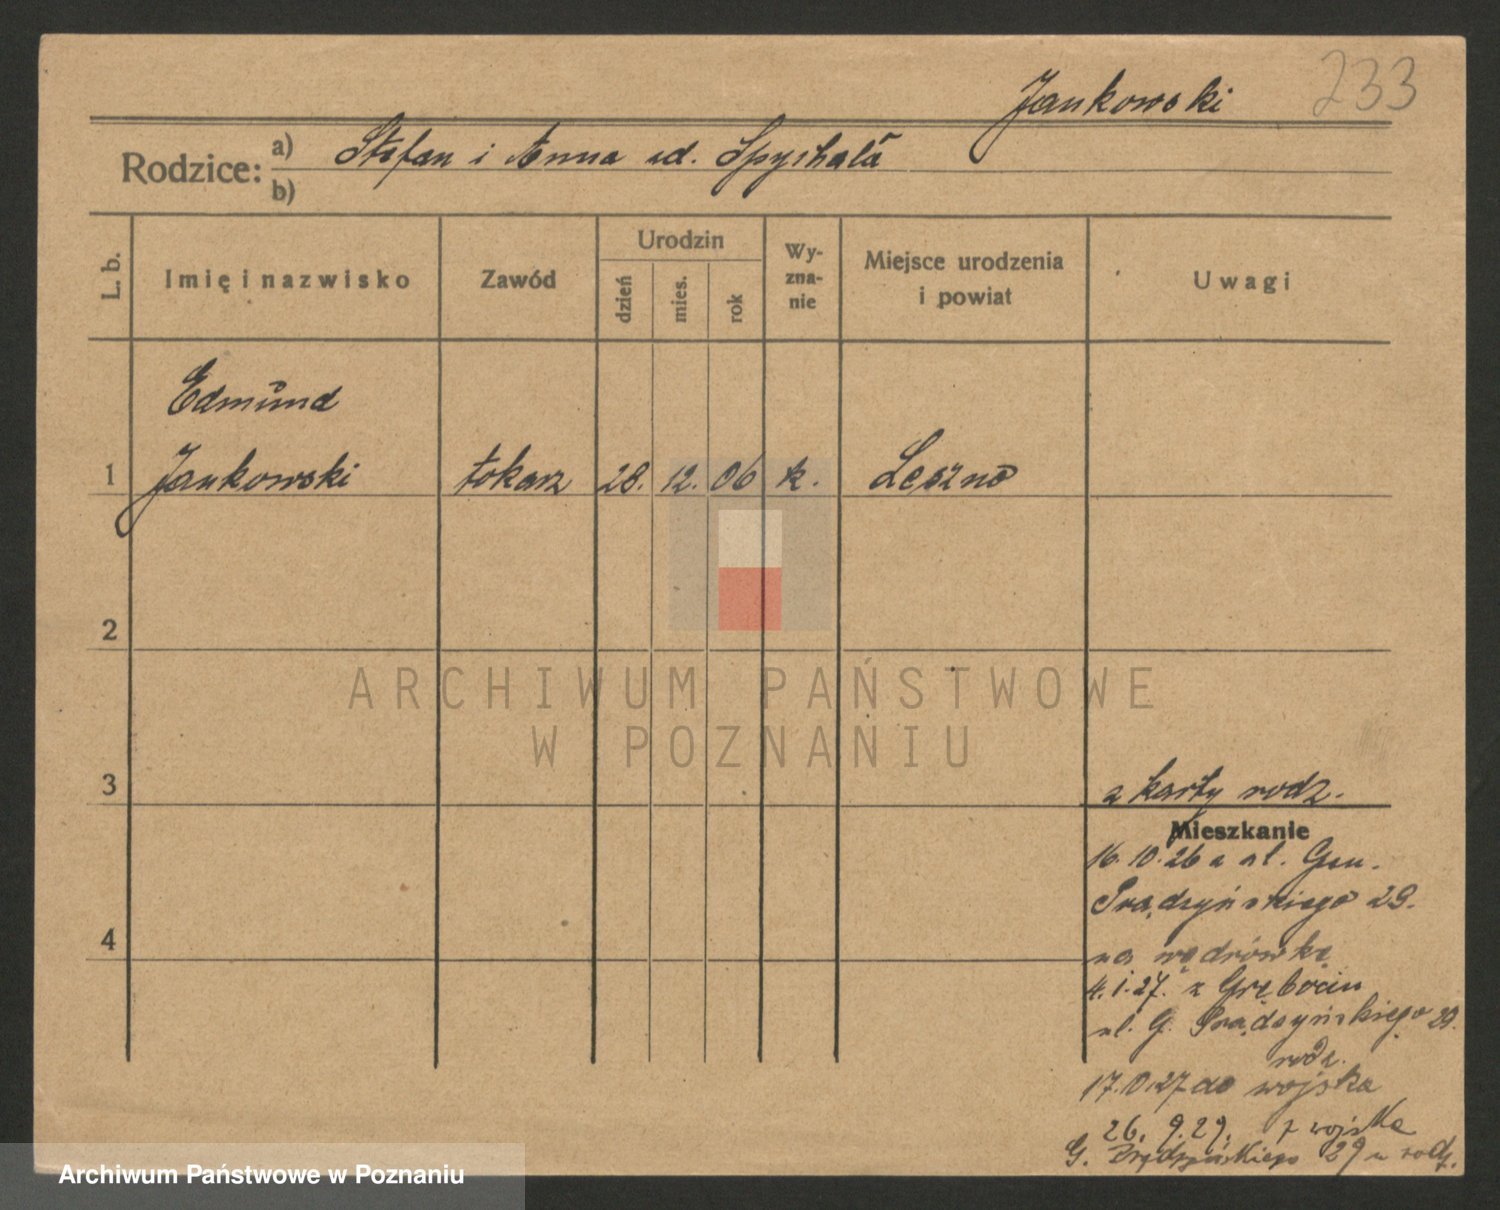 Jankowski 233
Rodzice: a) Stefan i Anna zd. Spychała
b)
L. b. Imię i nazwisko Zawód Urodzin dzień mies. rok Wy-zna-nie Miejsce urodzenia i powiat Uwagi
Edmund
1 Jankowski tokarz 28. 12. 06 k. Leszno
2
3 z karty rodz.
Mieszkanie
16.10.26 z ul. Gen.
Prądzyńskiego 29.
na wędrówkę
4
4.1.27. z Grębocin
ul. G. Prądzyńskiego 29.
rodz.
17.10.27 do wojska
26. 9. 29. z wojska
G. Prądzyńskiego 29 u rodz.
ARCHIWUM PAŃSTWOWE
W POZNANIU
Archiwum Państwowe w Poznaniu